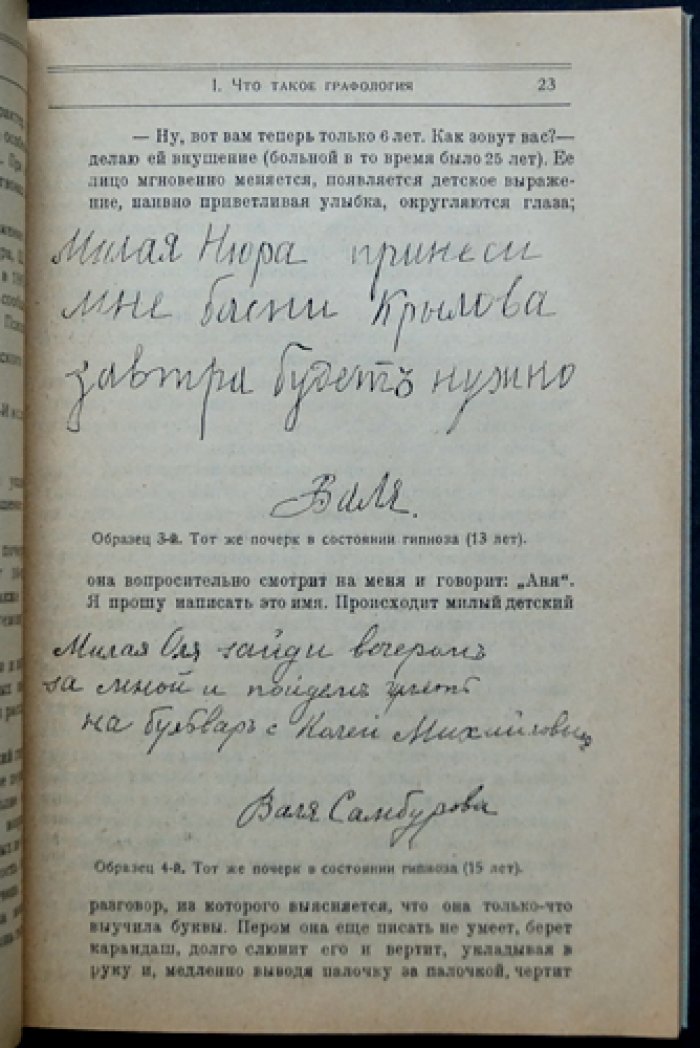 1. Что такое графология 23
— Ну, вот вам теперь только 6 лет. Как зовут вас?—
делаю ей внушение (больной в то время было 25 лет). Ее
лицо мгновенно меняется, появляется детское выраже-
ние, наивно приветливая улыбка, округляются глаза;
Милая Нюра принеси
мне басни Крылова
завтра будетъ нужно
Валя.
Образец 3-й. Тот же почерк в состоянии гипноза (13 лет).
она вопросительно смотрит на меня и говорит: „Аня“.
Я прошу написать это имя. Происходит милый детский
Милая Оля зайди вечеромъ
за мной и пойдемъ
на бульваръ с Колей
Валя Самбурова
Образец 4-й. Тот же почерк в состоянии гипноза (15 лет).
разговор, из которого выясняется, что она только-что
выучила буквы. Пером она еще писать не умеет, берет
карандаш, долго слюнит его и вертит, укладывая в
руку и, медленно выводя палочку за палочкой, чертит